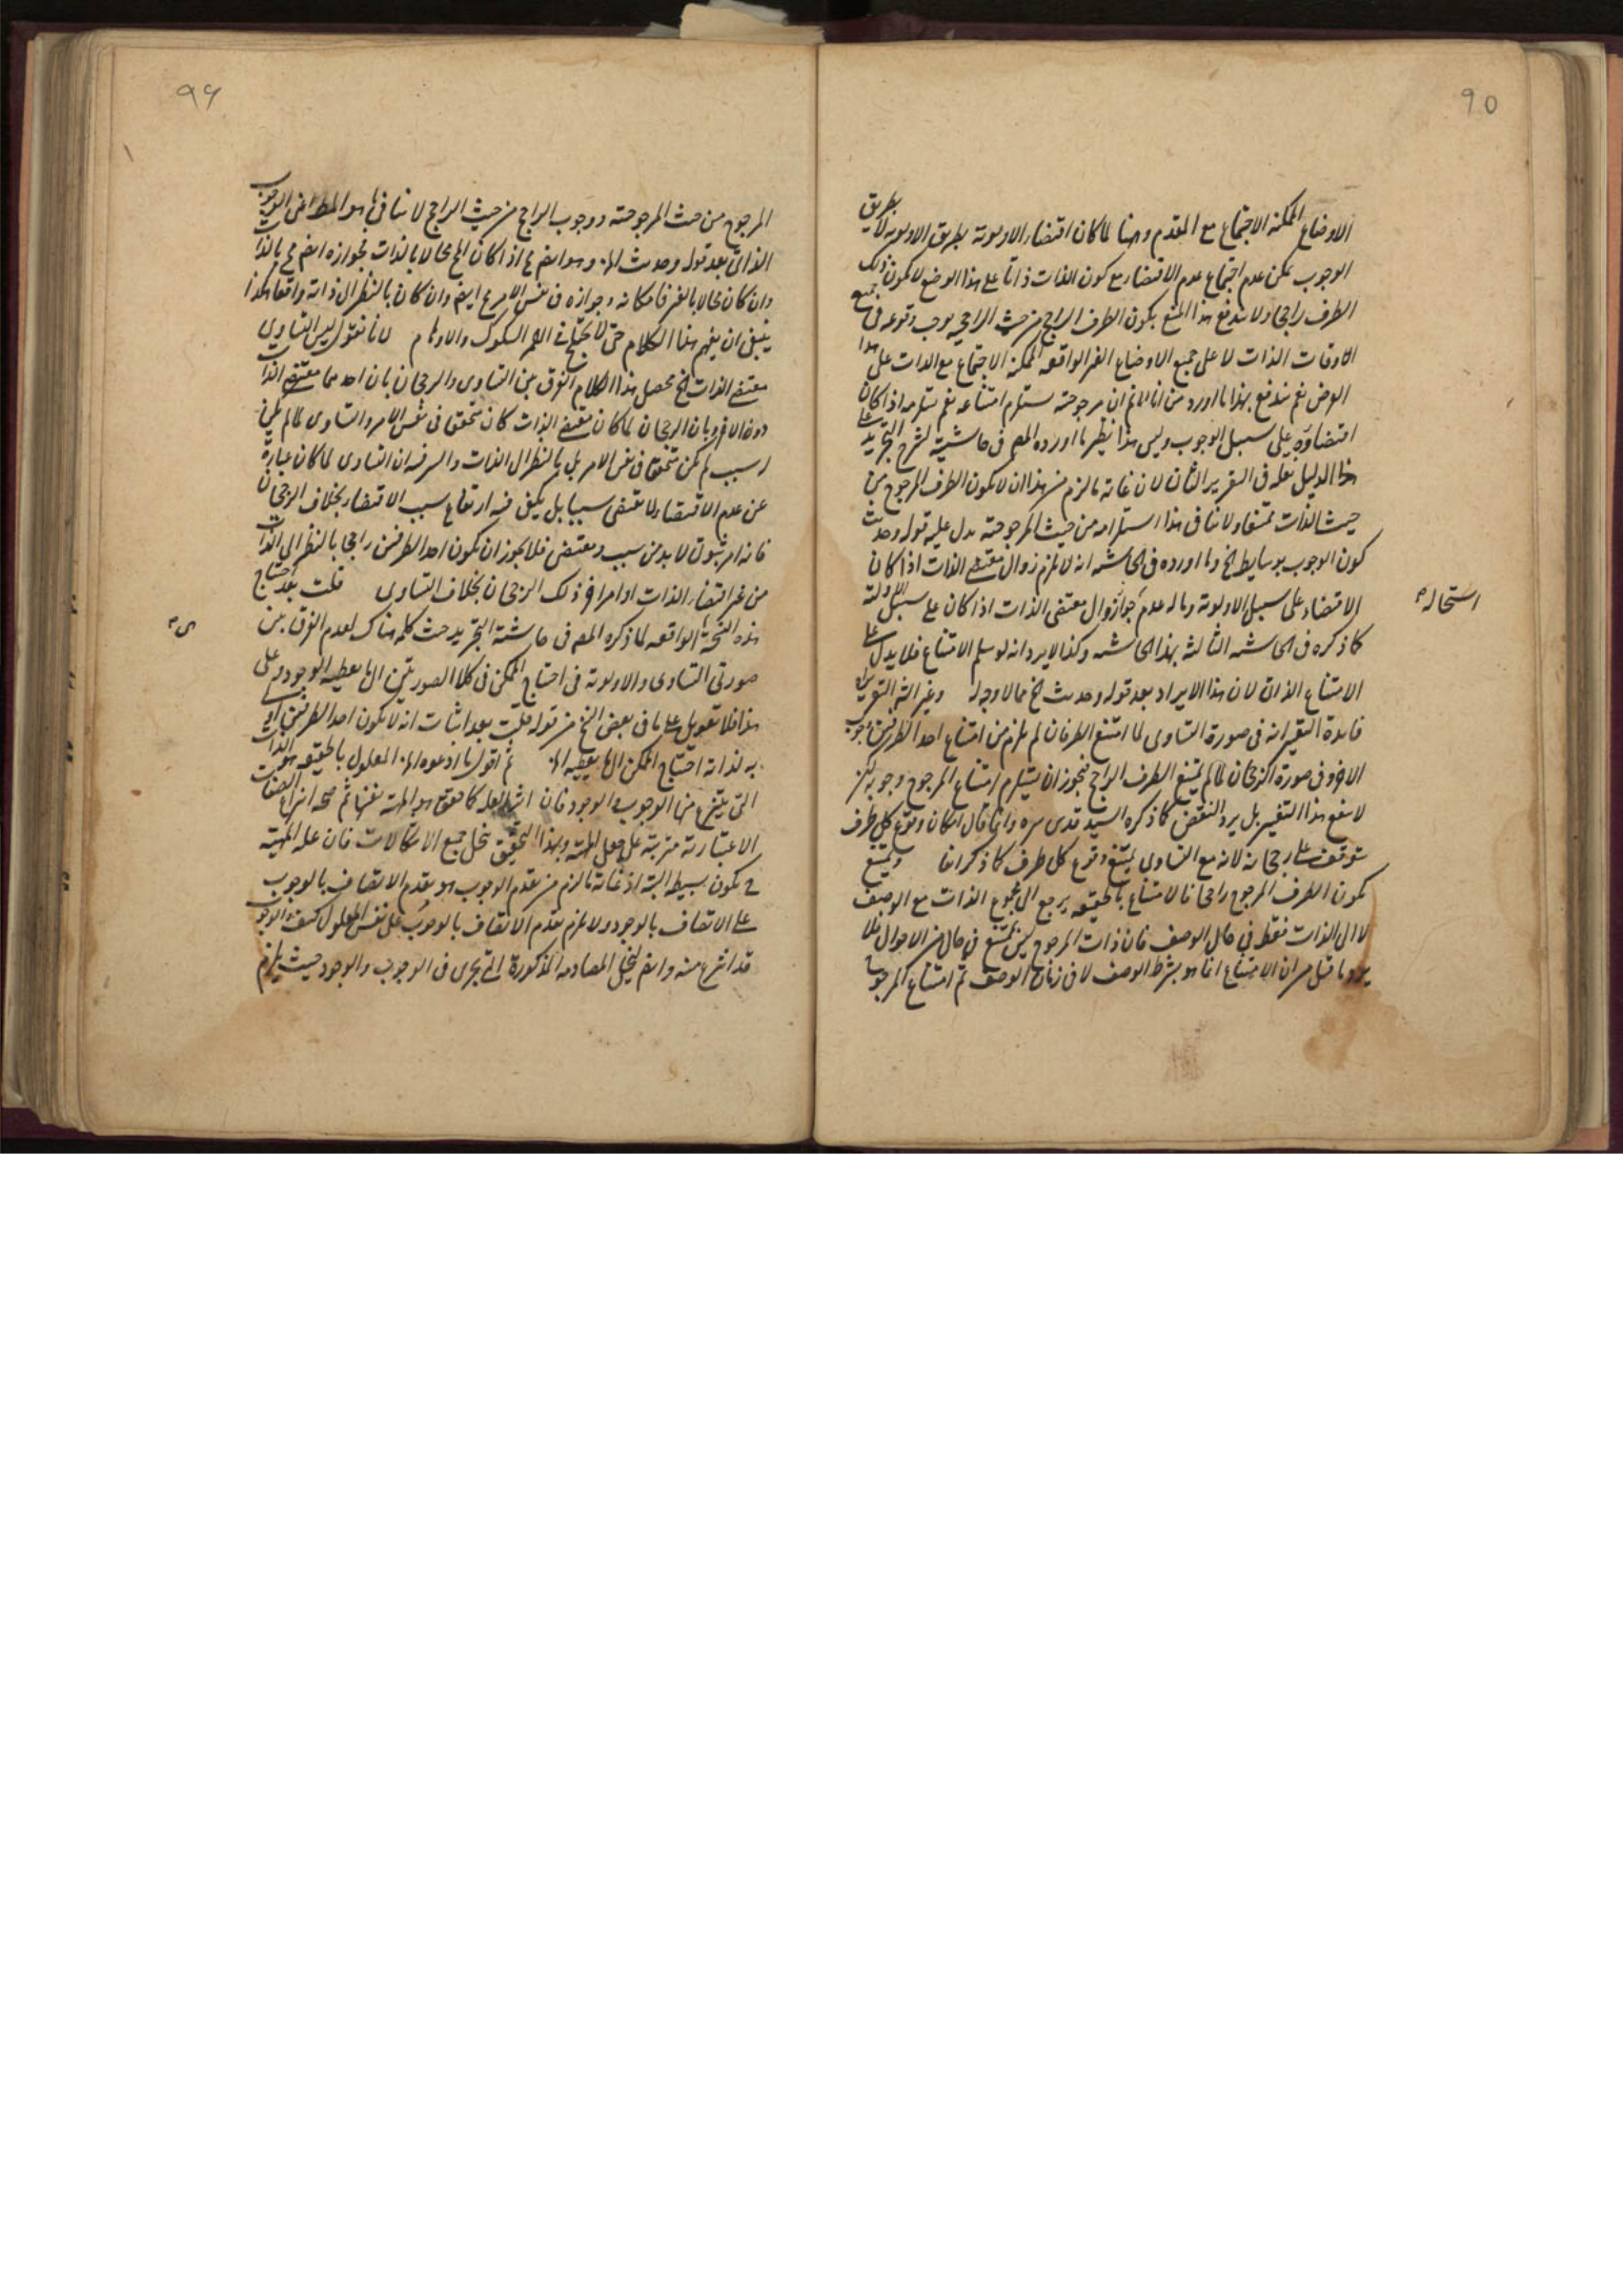 ٩٥
الاوضاع الممكنة الاجتماع مع المقدم وهنا لما كان اقتضاء الاولوية بطريق الاولوية لا بطريق
الوجوب يمكن عدم اجتماع عدم الاقتضاء مع كون الذات ذاتا على هذا الوضع لا يكون ذلك
الطرف راجحا ولا يندفع هذا المنع بكون الطرف الراجح من حيث الراجحية يوجب وقوعه في جميع
اوقات الذات لا على جميع الاوضاع الغير الواقعة الممكنة الاجتماع مع الذات على هذا
الفرض نعم يندفع بهذا ما اورد من انا لا نم ان مرجوحيته يستلزم امتناعه نعم يستلزمه اذا كان
اقتضاؤه على سبيل الوجوب وليس هذا نظير ما اورده المص في حاشية لشرح التجريد على
هذا الدليل نقله في التقرير الثاني لان غاية ما لزم من هذا ان لا يكون الطرف المرجوح من
حيث الذات ممتنعا ولا ينافي هذا استلزامه من حيث المرجوحية يدل عليه قوله وحديث
كون الوجوب بوسايط الخ وما اورده في الحاشية انه لا يلزم زوال مقتضى الذات اذا كان
الاقتضاء على سبيل الاولوية وماله عدم جواز زوال مقتضى الذات اذا كان على سبيل الاولوية
استحالة
كما ذكره في الحاشية الثالثة بهذا الحاشية وكذا لا يرد انه لو سلم الامتناع فلا يدل على
الامتناع الذاتي لان هذا الايراد بعد قوله وحديث الخ مما لا وجه له وغير اليه التقرير
فايدة التغيير انه في صورة التساوي لما امتنع الطرفان لم يلزم من امتناع احد الطرفين وجوب
الاخر وفي صورة الرجحان لما لم يمتنع الطرف الراجح فيجوز ان يستلزم امتناع المرجوح وجوبه لكن
لا ينفع هذا التغيير بل يرد النقض كما ذكره السيد قدس سره وانما قال امكان وقوع كل طرف
يتوقف على رجحانه لانه مع التساوي يمتنع وقوع كل طرف كما ذكر انفا ويمتنع
يكون الطرف المرجوح راجحا فالامتناع بالحقيقة يرجع الى مجموع الذات مع الوصف
لا الى الذات فقط في حال الوصف فان ذات المرجوح ليس يمتنع في حال من الاحوال فلا
يرد ما قيل من ان الامتناع انما هو بشرط الوصف لا في زمان الوصف ثم امتناع المرجوح
٩٦
المرجوح من حيث المرجوحية ووجوب الراجح من حيث الراجح لا ينافي ما هو المط اعني الوجوب
الذاتي بعد قوله وحديث الخ وهو ايضم ع اذا كان المح محالا بالذات فجوازه ايضم مح بالذات
وان كان محالا بالغير فامكانه وجوازه في نفس الامر ع ايضم وان كان بالنظر الى ذاته واقعا هكذا
ينبغي ان يفهم هذا الكلام حتى لا يختلج في الفهم الشكوك والاوهام لانا نقول ليس التساوي
مقتضى الذات الخ محصل هذا الكلام الفرق بين التساوي والرجحان بان احدهما مقتضى الذات
دون الاخر وبان الرجحان لما كان مقتضى الذات كان متحقق في نفس الامر والتساوي لما لم يكن
له سبب لم يكن متحققا في نفس الامر بل بالنظر الى الذات والسر فيه ان التساوي لما كان عبارة
عن عدم الاقتضاء لا يقتضي سببا بل يكفي فيه ارتفاع سبب الاقتضاء بخلاف الرجحان
فانه امر ثبوتي لا بد من سبب ومقتضى فلا يجوز ان يكون احد الطرفين راجحا بالنظر الى الذات
من غير اقتضاء الذات او امر اخر ذلك الرجحان بخلاف التساوي قلت بعد احتياج
هذه النسخة الواقعة لما ذكره المص في حاشية التجريد حيث حكم هناك بعدم الفرق بين
صورتي التساوي والاولوية في احتياج الممكن في كلا الصورتين الى ما يعطيه الوجود وعلى
هذا فلا تعويل على ما في بعض النسخ من قوله قلت بعد اثبات انه لا يكون احد الطرفين اولى
به لذاته احتياج الممكن الى ما يعطيه الخ ثم اقول ما ادعوه الخ المعلول بالحقيقة هو الذات
التي ينتزع منها الوجوب والوجود فان اثر العلة كما حقق هو الماهية نفسها ثم صحة انتزاع الصفات
الاعتبارية مترتبة على جعل الماهية وبهذا التحقيق ينحل جميع الاشكالات فان علة الماهية
ح يكون بسيطة البتة اذ غاية ما لزم من تقدم الوجوب هو تقدم الاتصاف بالوجوب
على الاتصاف بالوجود ولا يلزم تقدم الاتصاف بالوجوب على نفس المعلول كيف والوجوب
قد انتزع منه وايضم ينحل المصادمة المذكورة التي تجري في الوجوب والوجود حيث يلزم